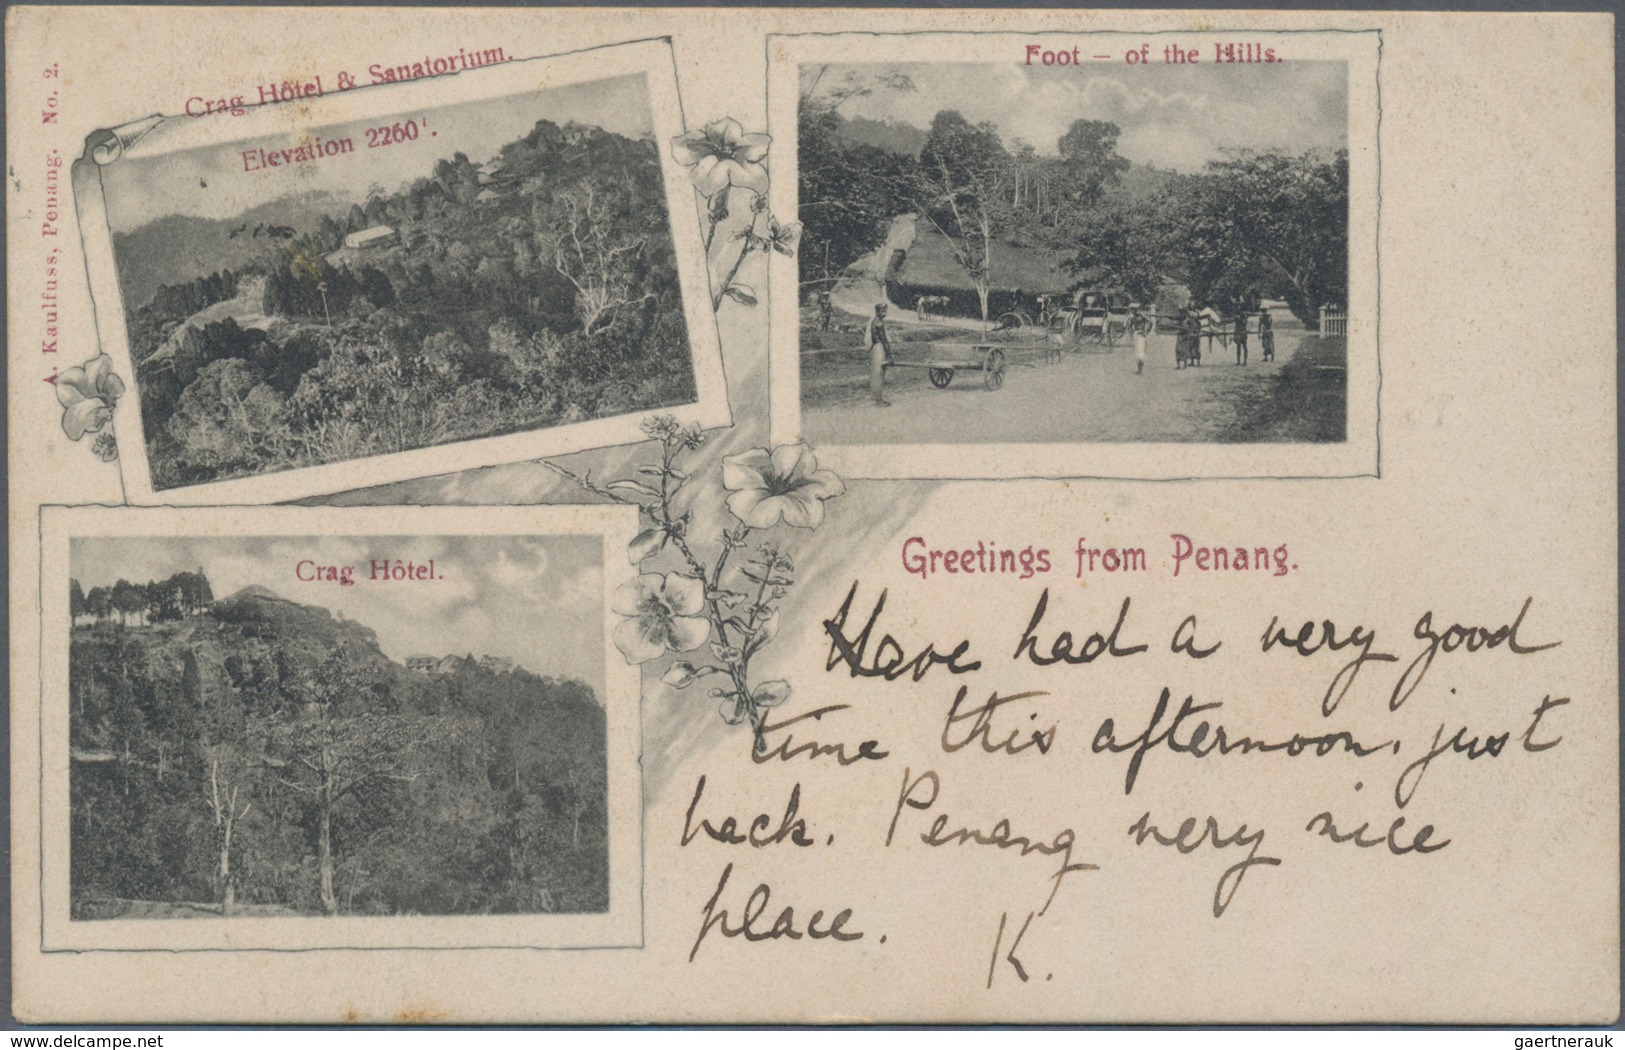 A. Kaulfuss, Penang. No. 2.
Crag Hôtel & Sanatorium.
Elevation 2260'.
Foot – of the Hills.
Crag Hôtel.
Greetings from Penang.
Have had a very good
time this afternoon. just
back. Penang very nice
place.
K.
www.delcampe.net
gaertnerauk